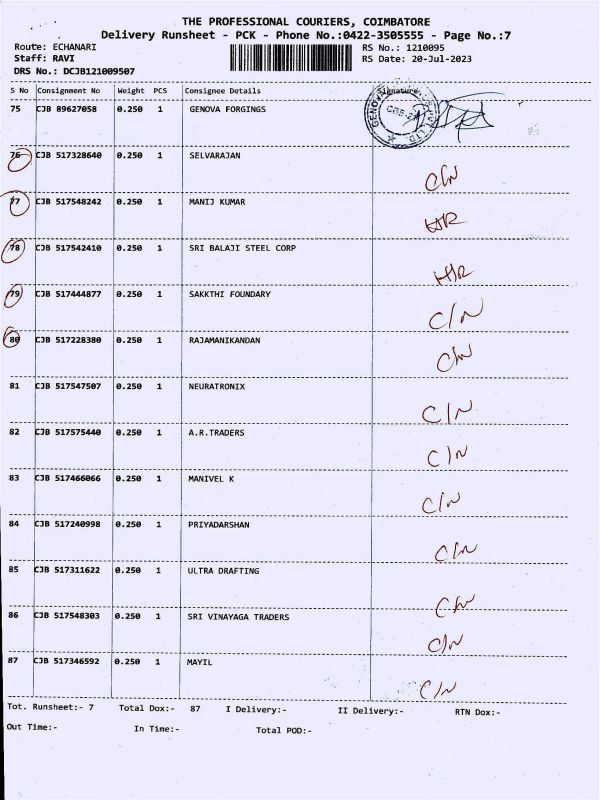 THE PROFESSIONAL COURIERS, COIMBATORE
Delivery Runsheet - PCK - Phone No.:0422-3505555 - Page No.:7
Route: ECHANARI RS No.: 1210095
Staff: RAVI RS Date: 20-Jul-2023
DRS No.: DCJB121009507
S No Consignment No Weight PCS Consignee Details Signature
75 CJB 89627058 0.250 1 GENOVA FORGINGS
76 CJB 517328640 0.250 1 SELVARAJAN
C/N
77 CJB 517548242 0.250 1 MANIJ KUMAR
78 CJB 517542410 0.250 1 SRI BALAJI STEEL CORP
79 CJB 517444877 0.250 1 SAKKTHI FOUNDARY
C/N
80 CJB 517228380 0.250 1 RAJAMANIKANDAN
C/N
81 CJB 517547507 0.250 1 NEURATRONIX
C/N
82 CJB 517575440 0.250 1 A.R.TRADERS
C/N
83 CJB 517466066 0.250 1 MANIVEL K
C/N
84 CJB 517240998 0.250 1 PRIYADARSHAN
C/N
85 CJB 517311622 0.250 1 ULTRA DRAFTING
C/N
86 CJB 517548303 0.250 1 SRI VINAYAGA TRADERS
C/N
87 CJB 517346592 0.250 1 MAYIL
C/N
Tot. Runsheet:- 7 Total Dox:- 87 I Delivery:- II Delivery:- RTN Dox:-
Out Time:- In Time:- Total POD:-